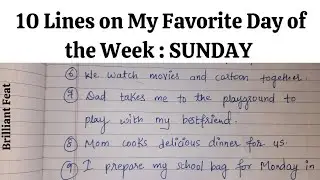 10 Lines on My Favorite Day of
the Week : SUNDAY
Brilliant Feat
⑥ We watch movies and cartoon together.
⑦ Dad takes me to the playground to
play with my bestfriend.
⑧ Mom cooks delicious dinner for us.
⑨ I prepare my school bag for Monday in